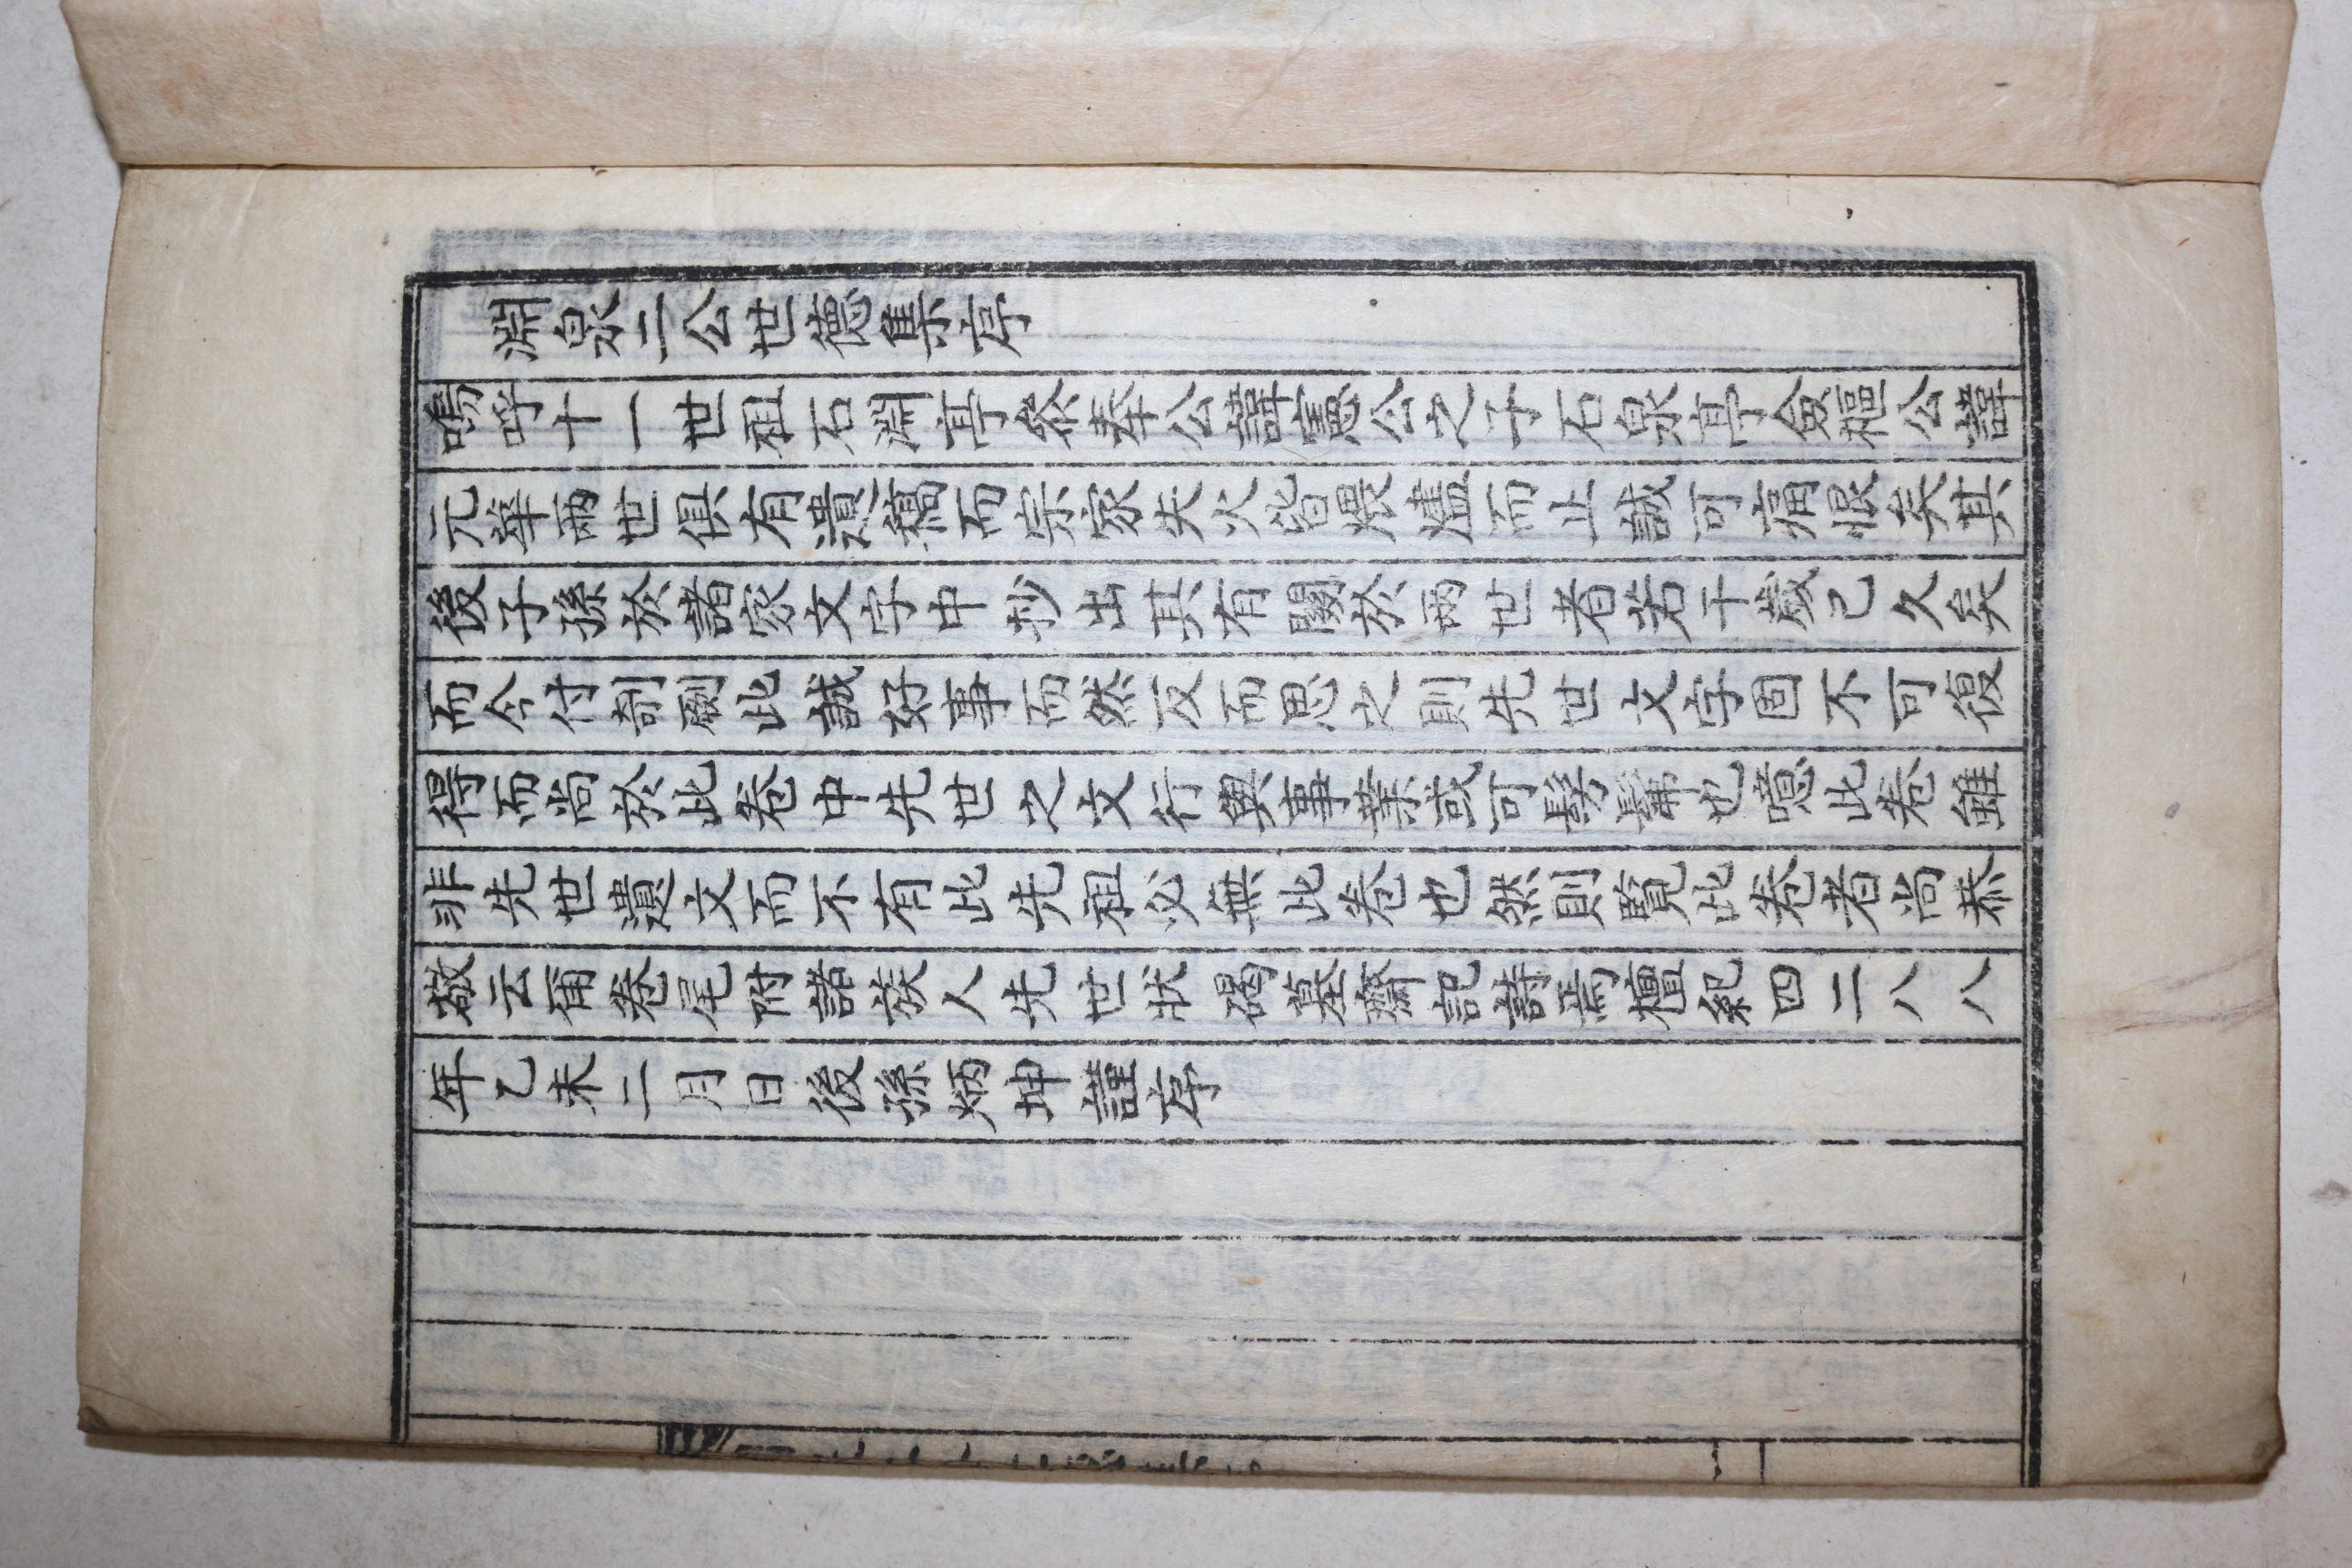 淵泉二公世德集序
嗚呼十一世祖石淵亭參奉公諱憲公之子石泉亭僉樞公諱
元華兩世俱有遺藁而宗家失火皆煨燼而止誠可痛恨矣其
後子孫於諸家文字中抄出其有關於兩世者若干歲已久矣
而今付剞劂此誠好事而然反而思之則先世文字固不可復
得而尚於此卷中先世之文行與事業或可髣髴也噫此卷雖
非先世遺文而不有此先祖必無此卷也然則覽此卷者尚恭
敬云爾卷尾附諸族人先世狀碣墓齋記詩焉檀紀四二八八
年乙未二月日後孫炳坤謹序